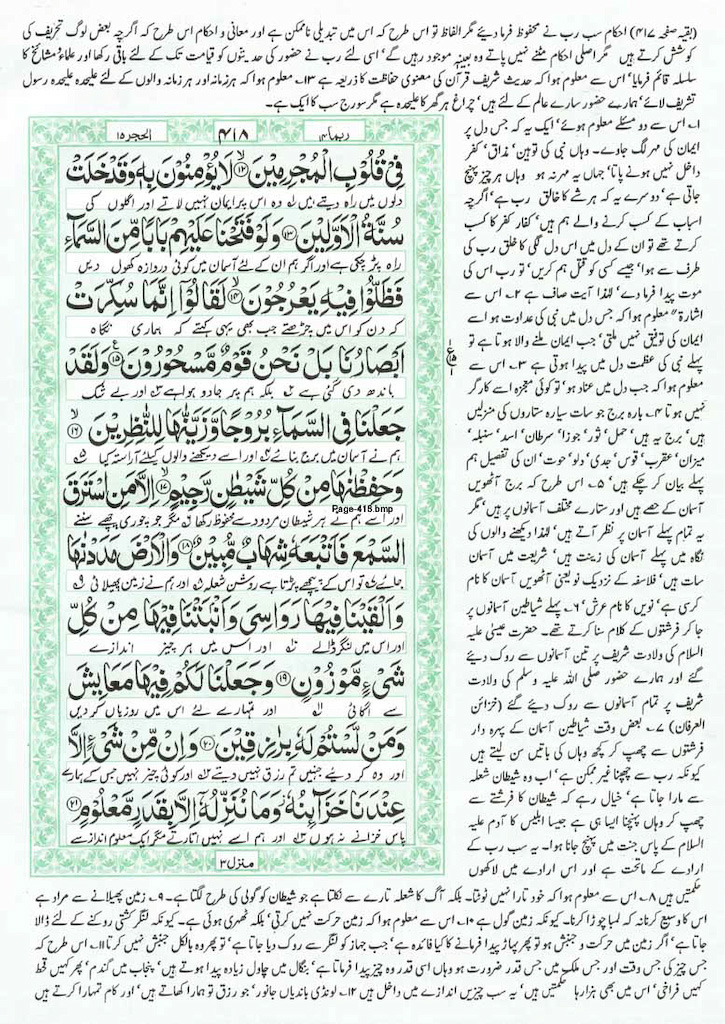 (بقیہ صفحہ ۴۱۷) احکام سب رب نے محفوظ فرما دیئے مگر الفاظ تو اس طرح کہ اس میں تبدیلی ناممکن ہے اور معانی و احکام اس طرح کہ اگرچہ بعض لوگ تحریف کی
کوشش کرتے ہیں مگر اصلی احکام مٹنے نہیں پاتے وہ بعینہٖ موجود رہیں گے' اسی لئے رب نے حضور کی حدیثوں کو قیامت تک کے لئے باقی رکھا اور علماء' مشائخ کا
سلسلہ قائم فرمایا' اس سے معلوم ہوا کہ حدیث شریف قرآن کی معنوی حفاظت کا ذریعہ ہے ۱۳۔ معلوم ہوا کہ ہر زمانہ اور ہر زمانہ والوں کے لئے علیحدہ علیحدہ رسول
تشریف لائے' ہمارے حضور سارے عالم کے لئے ہیں' چراغ ہر گھر کا علیحدہ ہے مگر سورج سب کا ایک ہے۔
ربما ۱۴
۴۱۸
الحجر ۱۵
فِیْ قُلُوْبِ الْمُجْرِمِیْنَ ۱۲ لَا یُؤْمِنُوْنَ بِهٖ وَقَدْ خَلَتْ
دلوں میں راہ دیتے ہیں وہ اس پر ایمان نہیں لاتے اور اگلوں کی
سُنَّةُ الْاَوَّلِیْنَ ۱۳ وَلَوْ فَتَحْنَا عَلَیْهِمْ بَابًا مِّنَ السَّمَآءِ
راہ پڑ چکی ہے اور اگر ہم ان کے لئے آسمان میں کوئی دروازہ کھول دیں
فَظَلُّوْا فِیْهِ یَعْرُجُوْنَ ۱۴ لَقَالُوْۤا اِنَّمَا سُكِّرَتْ
کہ دن کو اس میں چڑھتے جب بھی یہی کہتے کہ ہماری نگاہ
اَبْصَارُنَا بَلْ نَحْنُ قَوْمٌ مَّسْحُوْرُوْنَ ۱۵ وَلَقَدْ
باندھ دی گئی ہے بلکہ ہم پر جادو ہوا ہے اور بے شک
جَعَلْنَا فِی السَّمَآءِ بُرُوْجًا وَّزَیَّنّٰهَا لِلنّٰظِرِیْنَ ۱۶
ہم نے آسمان میں برج بنائے اور اسے دیکھنے والوں کیلئے آراستہ کیا
وَحَفِظْنٰهَا مِنْ كُلِّ شَیْطٰنٍ رَّجِیْمٍ ۱۷ اِلَّا مَنِ اسْتَرَقَ
Page-418.bmp
اور اسے ہم نے ہر شیطان مردود سے محفوظ رکھا مگر جو چوری چھپے سننے
السَّمْعَ فَاَتْبَعَهٗ شِهَابٌ مُّبِیْنٌ ۱۸ وَالْاَرْضَ مَدَدْنٰهَا
جائے تو اس کے پیچھے پڑتا ہے روشن شعلہ اور ہم نے زمین پھیلائی
وَاَلْقَیْنَا فِیْهَا رَوَاسِیَ وَاَنْۢبَتْنَا فِیْهَا مِنْ كُلِّ
اور اس میں لنگر ڈالے اور اس میں ہر چیز اندازے
شَیْءٍ مَّوْزُوْنٍ ۱۹ وَجَعَلْنَا لَكُمْ فِیْهَا مَعَایِشَ
سے اگائی اور تمہارے لئے اس میں روزیاں کر دیں
وَمَنْ لَّسْتُمْ لَهٗ بِرٰزِقِیْنَ ۲۰ وَاِنْ مِّنْ شَیْءٍ اِلَّا
اور وہ کر دیئے جنہیں تم رزق نہیں دیتے اور کوئی چیز نہیں جس کے ہمارے
عِنْدَنَا خَزَآئِنُهٗ وَمَا نُنَزِّلُهٗۤ اِلَّا بِقَدَرٍ مَّعْلُوْمٍ ۲۱
پاس خزانے نہ ہوں اور ہم اسے نہیں اتارتے مگر ایک معلوم اندازے سے
منزل ۳
۱۔ اس سے دو مسئلے معلوم ہوئے' ایک یہ کہ جس دل پر
ایمان کی مہر لگ جاوے۔ وہاں نبی کی توہین' مذاق' کفر
داخل نہیں ہونے پاتا' جہاں یہ مہر نہ ہو وہاں ہر چیز پہنچ
جاتی ہے' دوسرے یہ کہ ہر شے کا خالق رب ہے' اگرچہ
اسباب کے کسب کرنے والے ہم ہیں' کفار کفر کا کسب
کرتے تھے تو ان کے دل میں اس دل لگی کا خلق رب کی
طرف سے ہوا' جیسے کسی کو قتل ہم کریں' تو رب اس کی
موت پیدا فرما دے' لہٰذا آیت صاف ہے ۲۔ اس سے
اشارۃ" معلوم ہوا کہ جس دل میں نبی کی عداوت ہو اسے
ایمان کی توفیق نہیں ملتی' جب ایمان ملنے والا ہوتا ہے تو
پہلے نبی کی عظمت دل میں پیدا ہوتی ہے ۳۔ اس سے
معلوم ہوا کہ جب دل میں عناد ہو' تو کوئی معجزہ اسے کارگر
نہیں ہوتا ۴۔ بارہ برج جو سات سیارہ ستاروں کی منزلیں
ہیں' برج یہ ہیں' حمل' ثور' جوزا' سرطان' اسد' سنبلہ'
میزان' عقرب' قوس' جدی' دلو' حوت' ان کی تفصیل ہم
پہلے بیان کر چکے ہیں' ۵۔ اس طرح کہ برج آٹھویں
آسمان کے حصے ہیں اور ستارے مختلف آسمانوں پر ہیں' مگر
یہ تمام پہلے آسمان پر نظر آتے ہیں' لہٰذا دیکھنے والوں کی
نگاہ میں پہلے آسمان کی زینت ہیں' شریعت میں آسمان
سات ہیں' فلاسفہ کے نزدیک نو یعنی آٹھویں آسمان کا نام
کرسی ہے' نویں کا نام عرش' ۶۔ پہلے شیاطین آسمانوں پر
جا کر فرشتوں کے کلام سنا کرتے تھے۔ حضرت عیسیٰ علیہ
السلام کی ولادت شریف پر تین آسمانوں سے روک دیئے
گئے اور ہمارے حضور صلی اللہ علیہ وسلم کی ولادت
شریف پر تمام آسمانوں سے روک دیئے گئے (خزائن
العرفان) ۷۔ بعض وقت شیاطین آسمان کے پہرہ دار
فرشتوں سے چھپ کر کچھ وہاں کی باتیں سن لیتے ہیں
کیونکہ رب سے چھپنا غیر ممکن ہے' اب وہ شیطان شعلہ
سے مارا جاتا ہے' خیال رہے کہ شیطان کا فرشتے سے
چھپ کر وہاں پہنچنا ایسا ہی ہے جیسا ابلیس کا آدم علیہ
السلام کے پاس جنت میں پہنچ جانا ہوا۔ یہ سب رب کے
ارادے کے ماتحت ہے اور اس ارادے میں لاکھوں
حکمتیں ہیں ۸۔ اس سے معلوم ہوا کہ خود تارا نہیں ٹوٹتا۔ بلکہ آگ کا شعلہ تارے سے نکلتا ہے جو شیطان کو گولی کی طرح لگتا ہے۔ ۹۔ زمین پھیلانے سے مراد ہے
اس کا وسیع کرنا نہ کہ لمبا چوڑا کرنا۔ کیونکہ زمین گول ہے ۱۰۔ اس سے معلوم ہوا کہ زمین حرکت نہیں کرتی' بلکہ ٹھہری ہوئی ہے۔ کیونکہ لنگر کشتی روکنے کے لئے ڈالا
جاتا ہے' اگر زمین میں حرکت و جنبش ہو تو پھر پہاڑ پیدا فرمانے کا کیا فائدہ ہے' جب جہاز کو لنگر سے روک دیا جاتا ہے' تو پھر وہ بالکل جنبش نہیں کرتا ۱۱۔ اس طرح کہ
جس چیز کی جس وقت اور جس ملک میں جس قدر ضرورت ہو وہاں اسی قدر وہ چیز پیدا فرماتا ہے' بنگال میں چاول زیادہ پیدا ہوتے ہیں' پنجاب میں گندم' پھر کہیں قحط
کہیں فراخی' اس میں بھی ہزارہا حکمتیں ہیں' یہ سب چیزیں اندازے میں داخل ہیں ۱۲۔ لونڈی باندیاں جانور' جو رزق تو ہمارا کھاتے ہیں' اور کام تمہارا کرتے ہیں